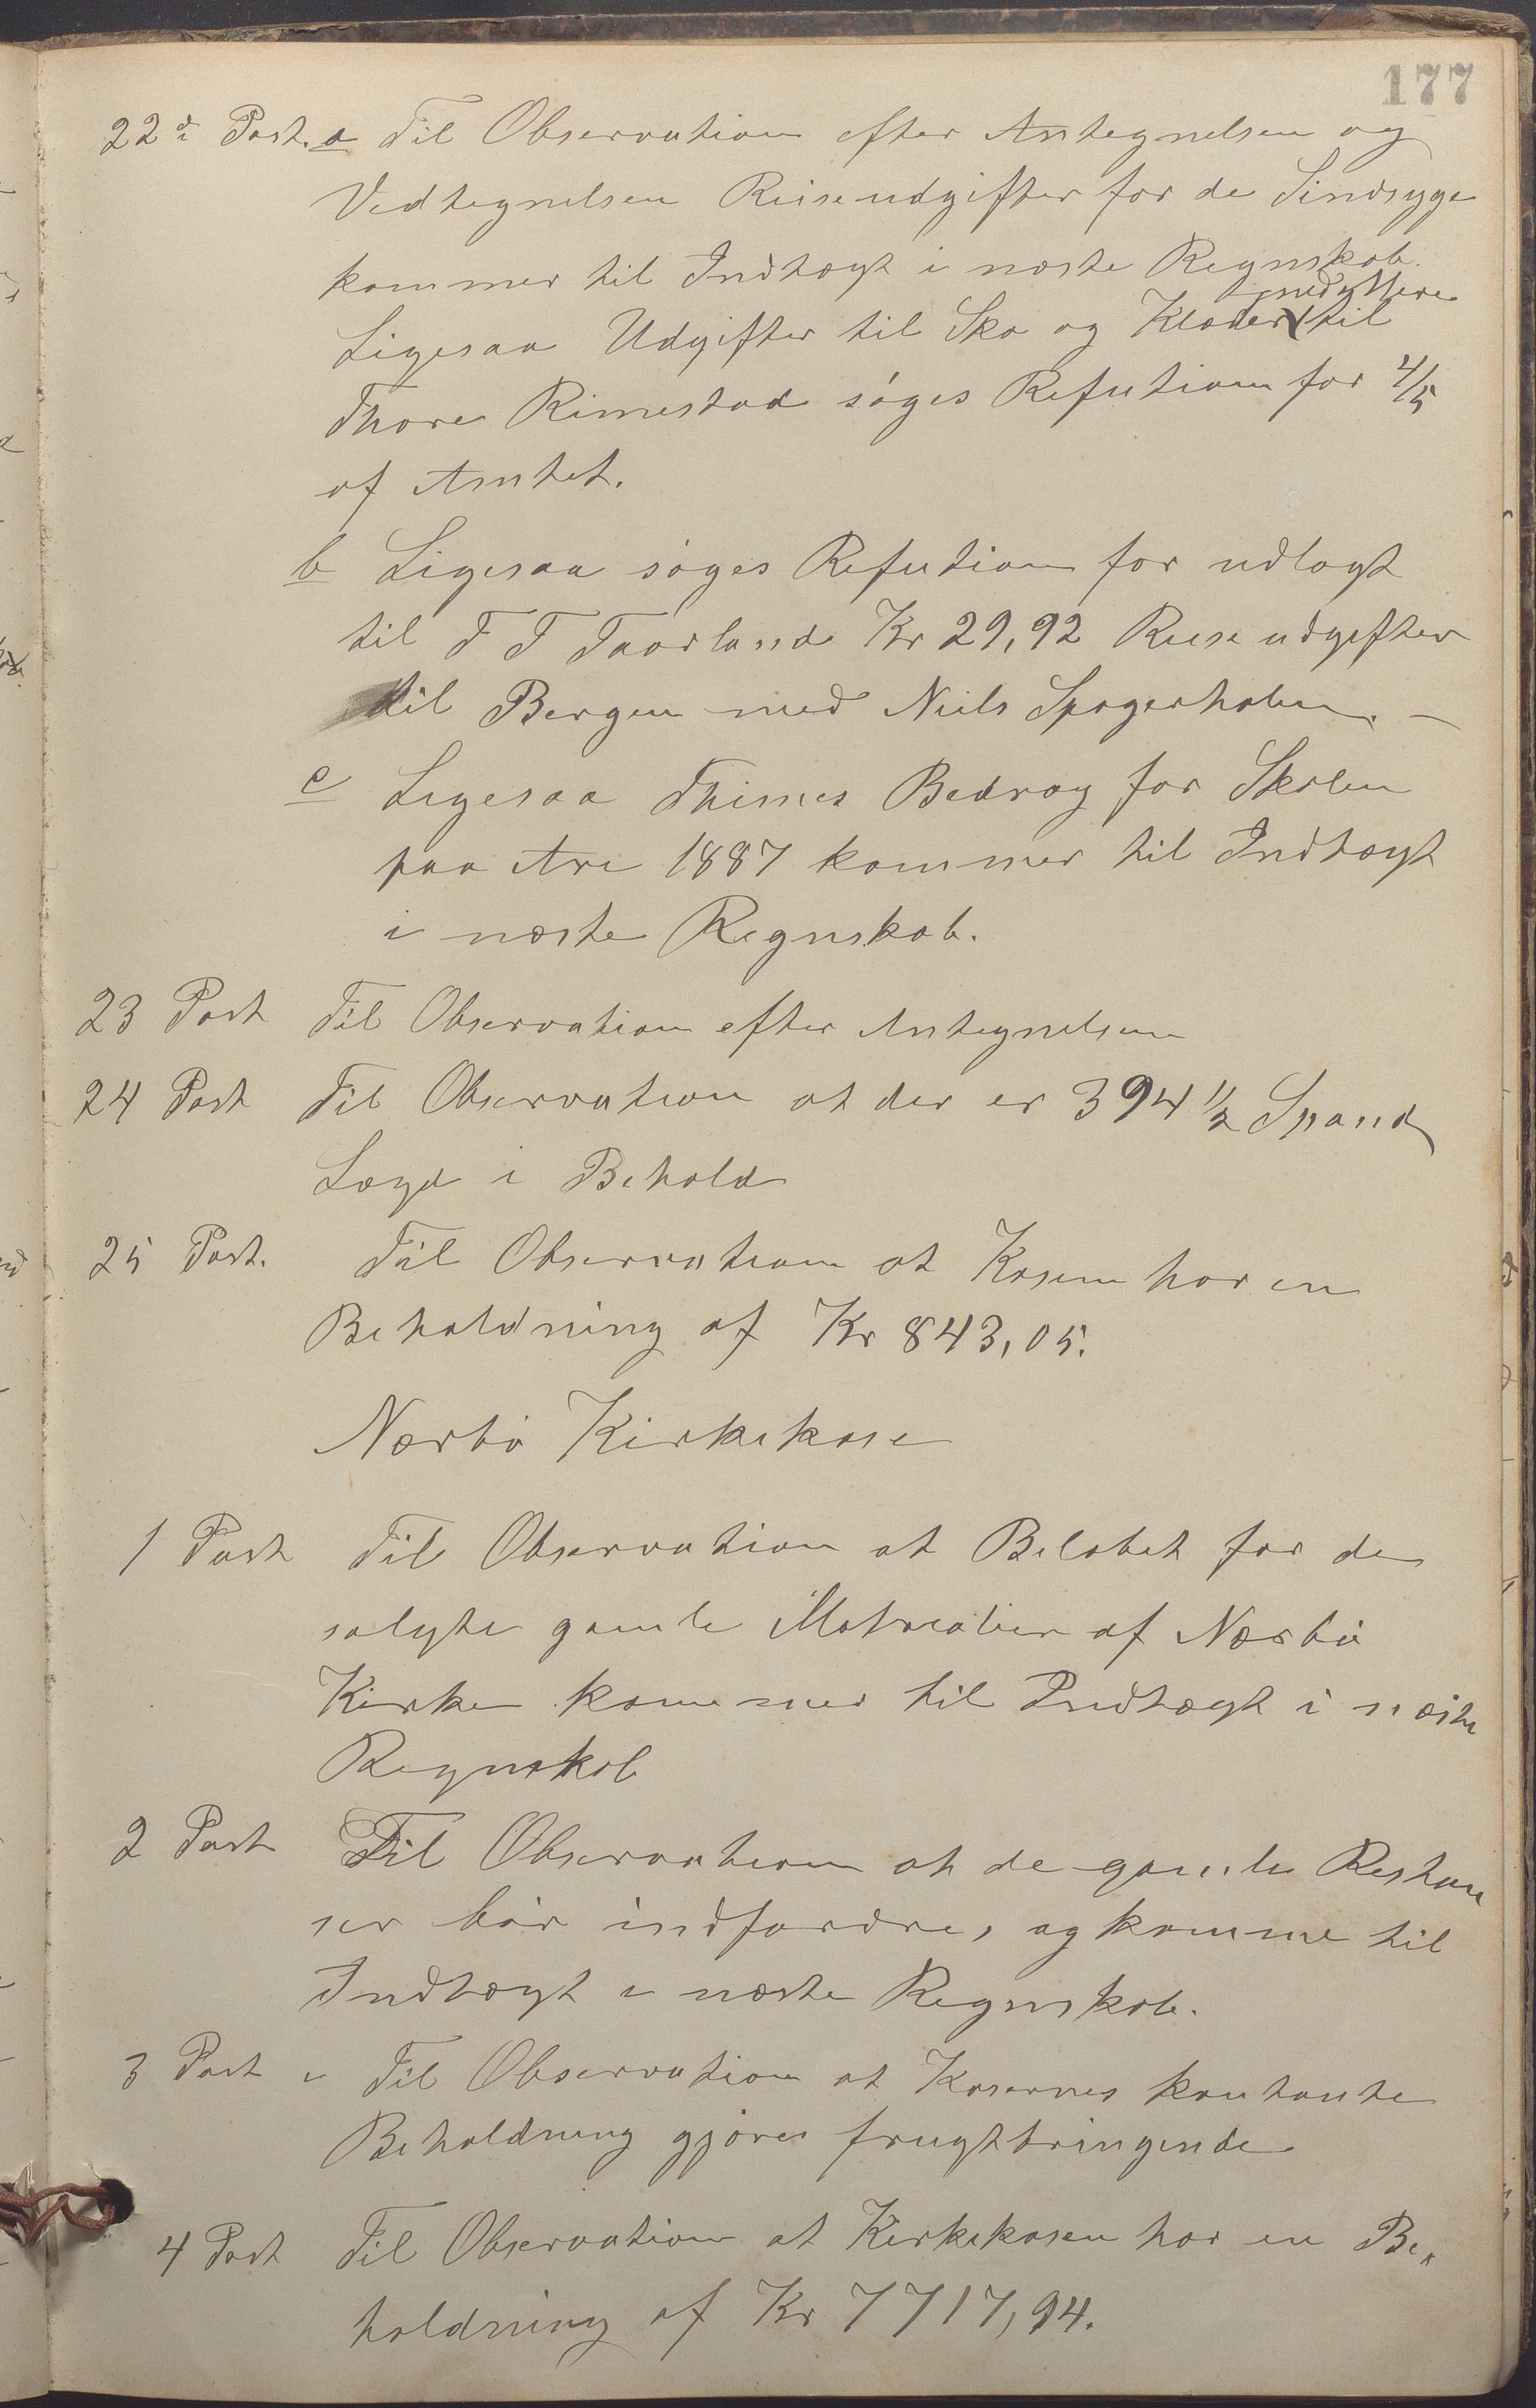 177
22de Post. a Til Observation efter Antegnelsen og
Vedtegnelsen Reiseudgifter for de Sindsyge
kommer til Indtægt i næste Regnskab.
Ligesaa Udgifter til Sko og Klæder til
Thore Rimestad søges Refution for 4/5
af Amtet.
b Ligesaa søges Refution for udlagt
til T T Taarland Kr 29,92 Reiseudgifter
til Bergen med Niels Spogerholen. –
c Ligesaa Thimes Bedrag for Skolen
paa Are 1887 kommer til Indtægt
i næste Regnskab.
23 Post Til Observation efter Antegnelsen
24 Post Til Observation at der er 394 1/2 Spand
Lægd i Behold
25 Post. Til Observation at Kasen har en
Beholdning af Kr 843,05.
Nærbø Kirkekase
1 Post Til Observation at Beløbet for de
solgte gamle Matrealier af Nærbø
Kirke kommer til Indtægt i næste
Regnskab
2 Post Til Observation at de gamle Restan
ser bør indfordres og komme til
Indtægt i næste Regnskab.
3 Post Til Observation at Kasernes kontante
Beholdning gjøres frugtbringende
4 Post Til Observation at Kirkekasen har en Be„
holdning af Kr 7717,94.